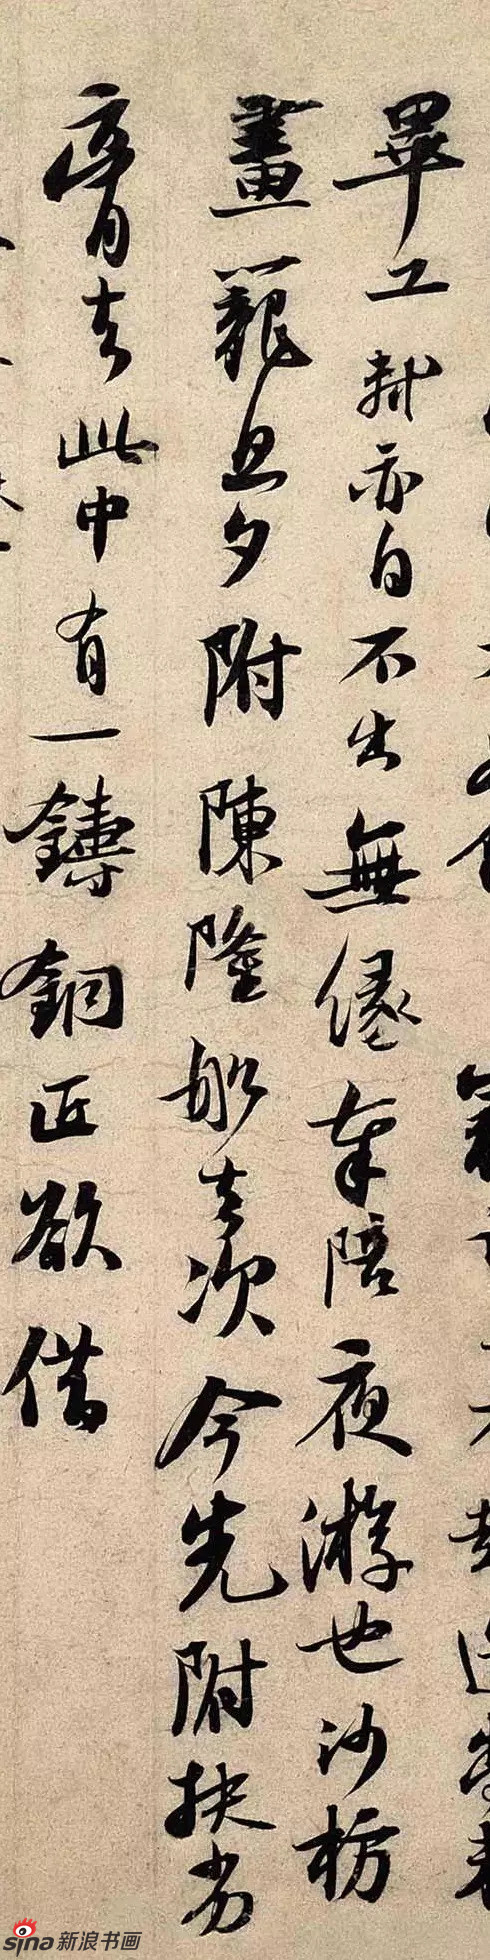 畢工軾亦自不出無緣奉陪夜游也沙枋
畫籠旦夕附陳隆船去次今先附扶劣
膏去此中有一鑄銅匠欲借
sina新浪书画